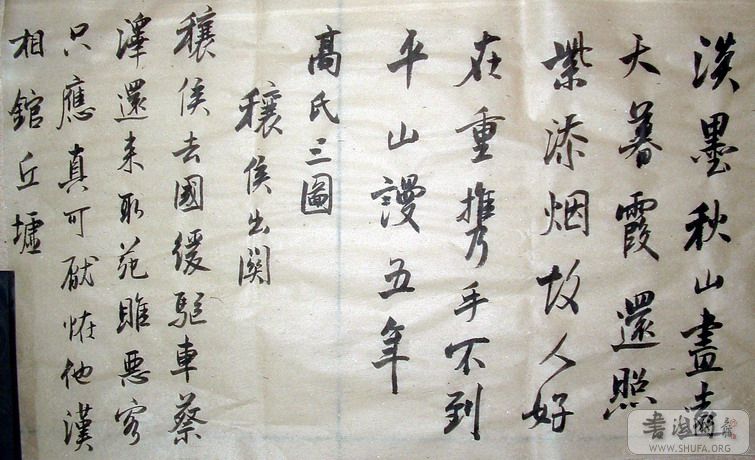 淡墨秋山畫遠
天暮霞還照
紫添烟故人好
在重攜手不到
平山謾五年
高氏三圖
穰侯出關
穰侯去國緩驅車蔡
澤還来取范雎惡客
只應真可厭恠他漢
相舘丘墟
WWW.SHUFA.ORG